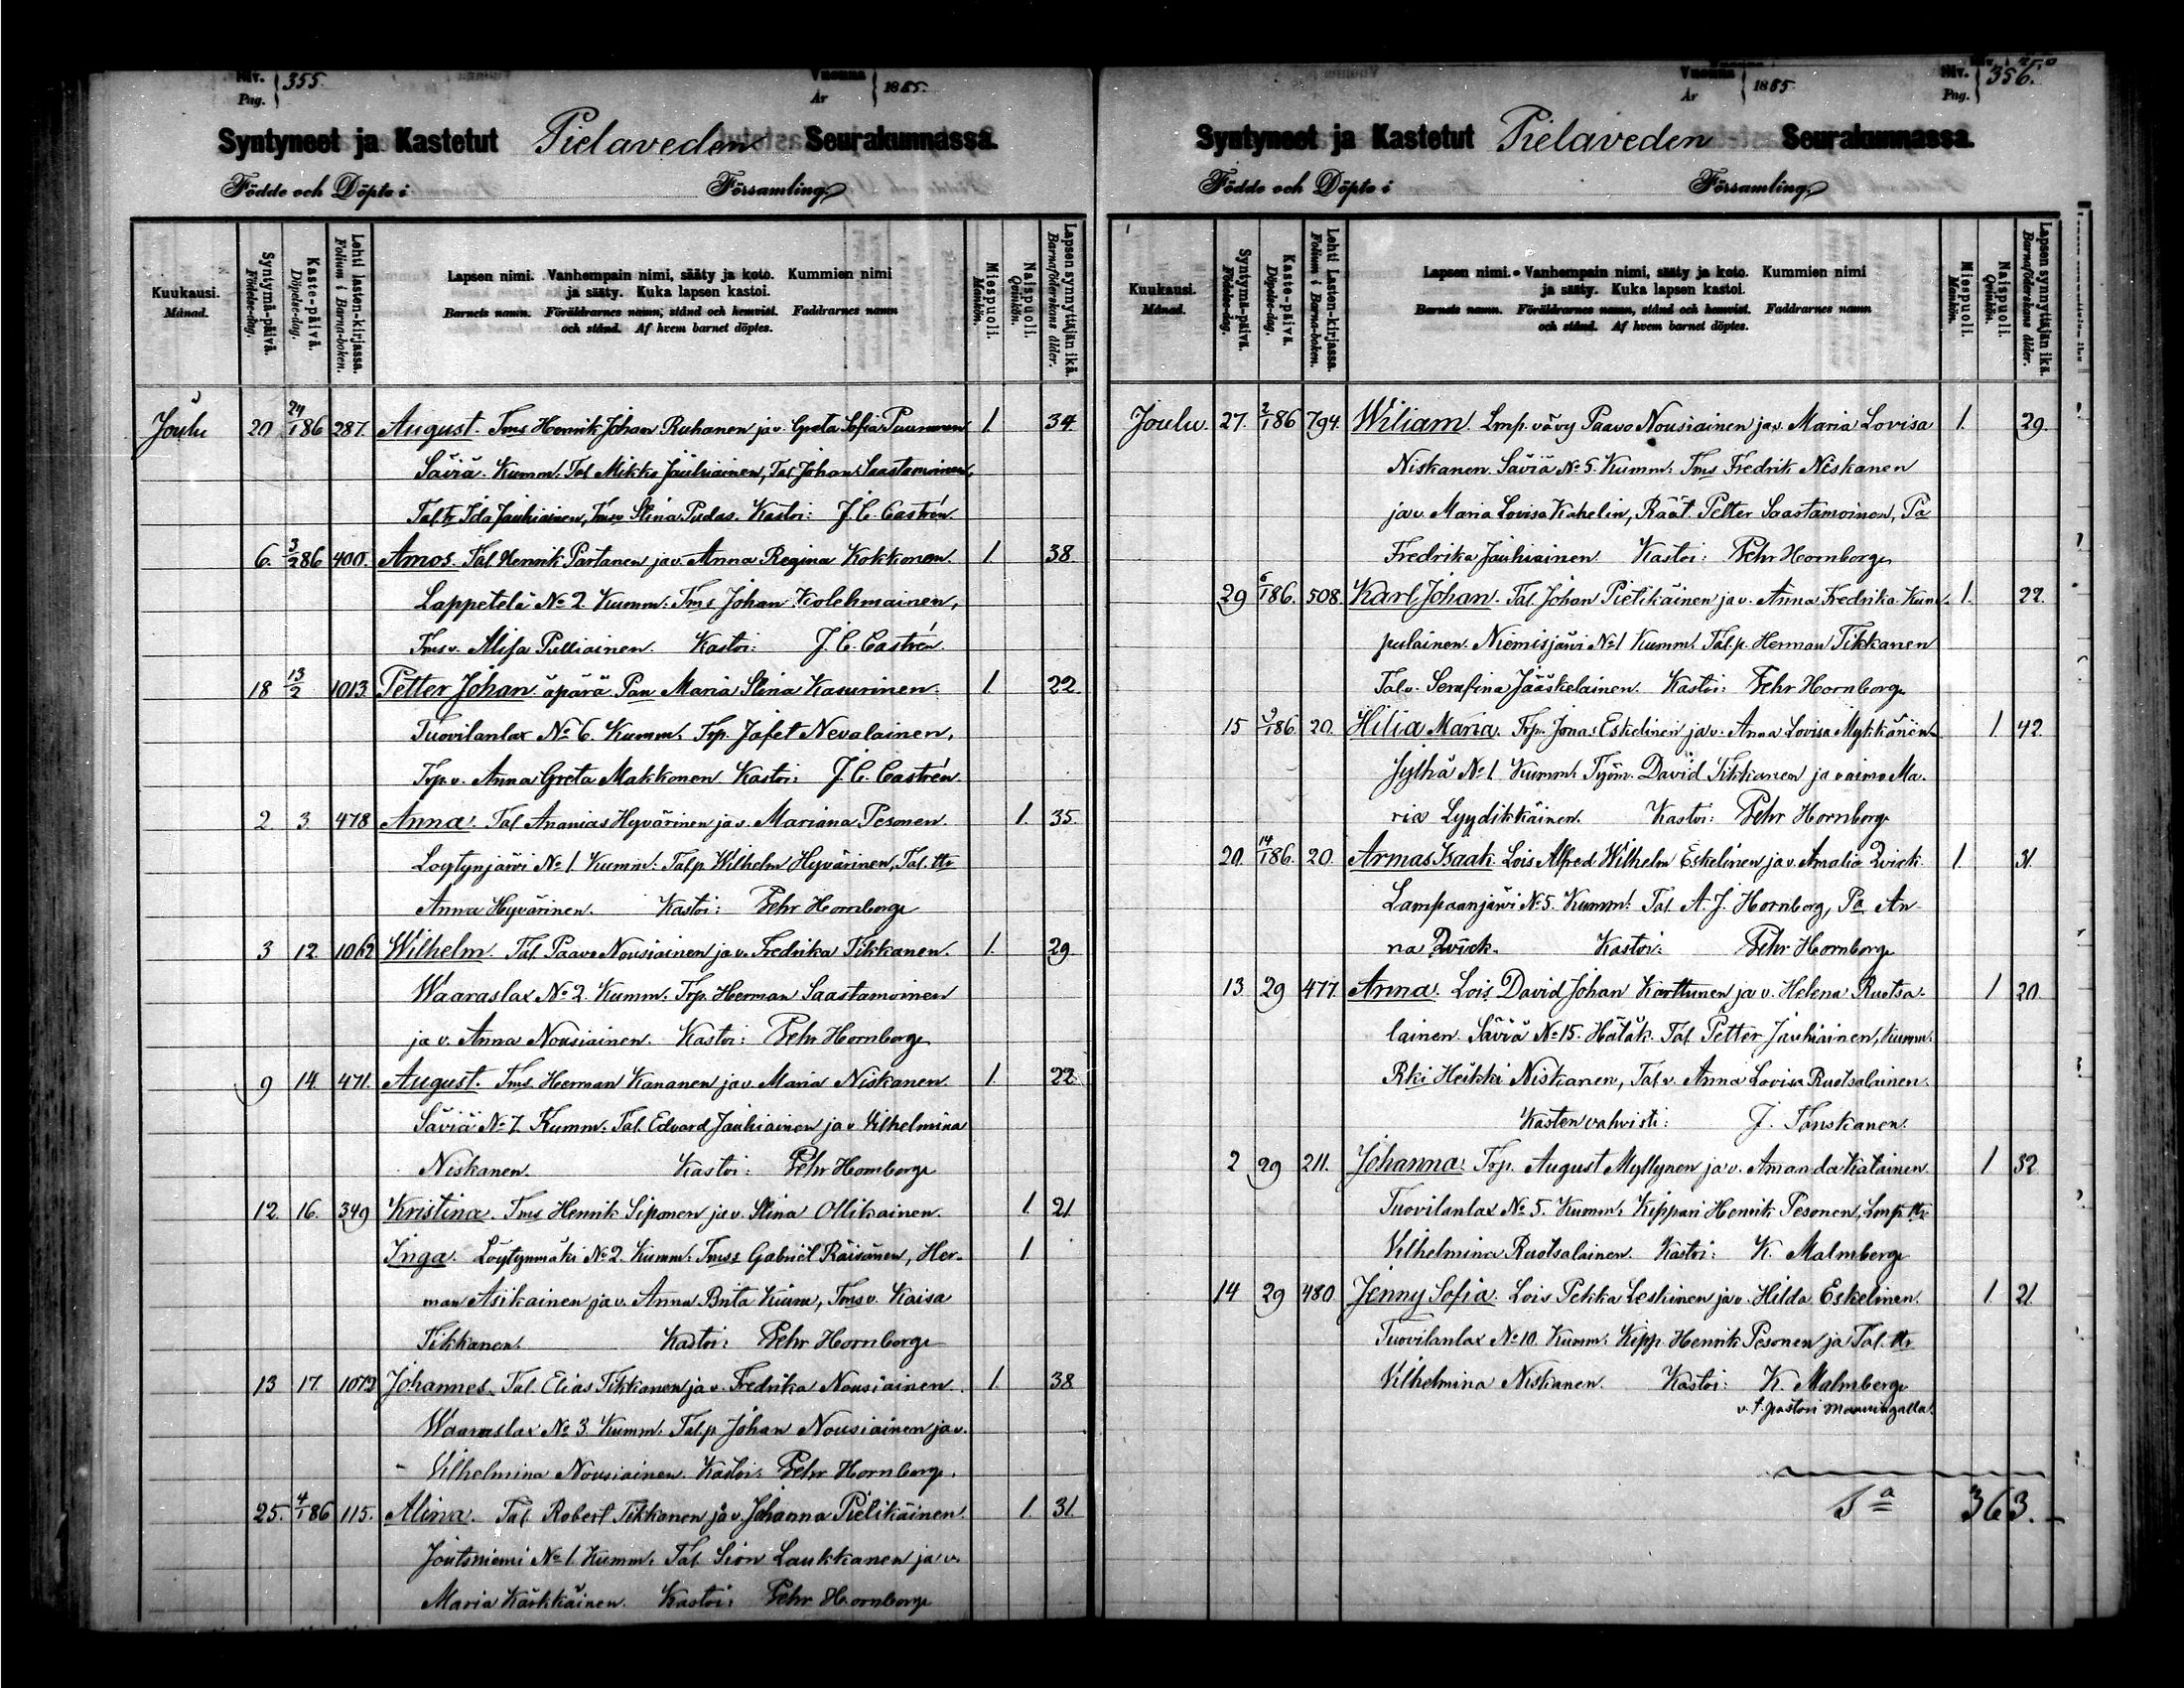 Siv. 355.
Pag.
Vuonna 1885.
År
Syntyneet ja Kastetut Pielaveden Seurakunnassa.
Födde och Döpte i Församling
Kuukausi. Månad.
Syntymä-päivä. Födelse-dag.
Kaste-päivä. Döpelse-dag.
Lehti lasten-kirjassa. Folium i Barna-boken.
Lapsen nimi. Vanhempain nimi, sääty ja koto. Kummien nimi
ja sääty. Kuka lapsen kastoi.
Barnets namn. Föräldrarnes namn, stånd och hemvist. Faddrarnes namn
och stånd. Af hvem barnet döptes.
Miespuoli. Mankön.
Naispuoli. Qvinkön.
Lapsen synnyttäjän ikä. Barnaföderskans ålder.
Joulu 20 24/1 86 287. August. Tms Henrik Johan Ruhanen ja v. Greta Sofia Puumanen 1. 34.
Säviä. Kumm: Tal Mikko Jauhiainen, Tal Johan Saastamoinen,
Tal tr Ida Jauhiainen, Tms v Stina Pudas. Kastoi: J. C. Castrén.
6. 3/2 86 400. Amos. Tal. Henrik Partanen ja v. Anna Regina Kokkonen. 1. 38.
Lappetelä No 2. Kumm: Tms Johan Kolehmainen,
Tms v. Alisa Pulliainen. Kastoi: J. C. Castrén
18 13/2 1013 Petter Johan äpärä Pan Maria Stina Kasurinen. 1. 22.
Tuovilanlax No 6. Kumm: Trp. Jafet Nevalainen,
Trp. v. Anna Greta Makkonen Kastoi: J. C. Castrén
2. 3. 478 Anna. Tal Ananias Hyvärinen ja v. Mariana Pesonen. 1. 35.
Loytynjärvi No 1. Kumm: Talp. Wilhelm Hyvärinen, Tal. ttr
Anna Hyvärinen. Kastoi: Pehr Hornborg
3 12. 1062 Wilhelm. Tal. Paavo Nousiainen ja v. Fredrika Tikkanen. 1. 29
Waaraslax No 2. Kumm: Trp. Herman Saastamoinen
ja v. Anna Nousiainen. Kastoi: Pehr Hornborg
9 14. 471. August. Tms Herman Kananen ja v. Maria Niskanen. 1. 22.
Säviä No 7. Kumm: Tal. Edvard Jauhiainen ja v Vilhelmina
Niskanen. Kastoi: Pehr Hornborg
12. 16. 349 Kristina. Tms Henrik Siponen ja v. Stina Ollikainen. 1. 21
Inga. Löytynmäki No 2. Kumm: Tmss Gabriel Räisänen, Her- 1.
man Asikainen ja v. Anna Brita Kiura, Tms v. Kaisa
Tikkanen. Kastoi: Pehr Hornborg
13 17. 1073 Johannes. Tal. Elias Tikkanen ja v. Fredrika Nousiainen. 1. 38
Waaraslax No 3. Kumm: Tal.p. Johan Nousiainen ja v.
Vilhelmina Nousiainen. Kastoi: Pehr Hornborg.
25. 4/1 86 115. Alina. Tal. Robert Tikkanen ja v. Johanna Pielikäinen. 1. 31.
Joutsniemi No 1. Kumm: Tal. Sion Laukkanen ja v.
Maria Kärkkäinen. Kastoi: Pehr Hornborg
Siv. 356.
Pag.
Vuonna 1885
År
Syntyneet ja Kastetut Pielaveden Seurakunnassa.
Födde och Döpte i Församling
Kuukausi. Månad.
Syntymä-päivä. Födelse-dag.
Kaste-päivä. Döpelse-dag.
Lehti Lasten-kirjassa. Folium i Barna-boken.
Lapsen nimi. Vanhempain nimi, sääty ja koto. Kummien nimi
ja sääty. Kuka lapsen kastoi.
Barnets namn. Föräldrarnes namn, stånd och hemvist. Faddrarnes namn
och stånd. Af hvem barnet döptes.
Miespuoli. Mankön.
Naispuoli. Qvinkön.
Lapsen synnyttäjän ikä. Barnaföderskans ålder.
Joulu. 27. 2/1 86 794. Wiliam. Lmp. vävy Paavo Nousiainen ja v. Maria Lovisa 1. 29.
Niskanen. Säviä No 5. Kumm: Tms Fredrik Niskanen
ja v. Maria Lovisa Kahelin, Räät. Petter Saastamoinen, Pa
Fredrika Jauhiainen Kastoi: Pehr Hornborg
29 6/1 86. 508. Karl Johan. Tal. Johan Pielikäinen ja v. Anna Fredrika Kum- 1. 22.
pulainen. Niemisjärvi No 1 Kumm: Tal.p. Herman Tikkanen
Tal v. Serafina Jääskelainen. Kastoi: Pehr Hornborg
15 3/1 86. 20. Hilia Maria. Trp. Jonas Eskelinen ja v. Anna Lovisa Mykkänen. 1. 42.
Jylhä No 1. Kumm: Työm. David Tikkanen ja vaimo Ma-
ria Lyydikkäinen. Kastoi: Pehr Hornborg
20. 14/1 86. 20. Armas Isaak. Lois Alfred Wilhelm Eskelinen ja v. Amalia Qvick. 1. 31.
Lampaanjärvi No 5. Kumm: Tal. A. J. Hornborg, Pa An-
na Qvick. Kastoi: Pehr Hornborg
13 29 477 Anna. Lois David Johan Karttunen ja v. Helena Ruotsa- 1 20
lainen. Säviä No 15. Hätäk. Tal. Petter Jauhiainen, Kumm:
Rki Heikki Niskanen, Tal v. Anna Lovisa Ruotsalainen.
Kasten vahvisti: J. Tanskanen.
2 29 211. Johanna. Trp. August Myllynen ja v. Amanda Katainen. 1 32
Tuovilanlax No 5. Kumm: Kippari Henrik Pesonen, Lmp. ttr
Vilhelmina Ruotsalainen. Kastoi: K. Malmberg
14 29 480. Jenny Sofia. Lois Pekka Leskinen ja v. Hilda Eskelinen. 1. 21.
Tuovilanlax No 10. Kumm: Kipp. Henrik Pesonen ja Tal. ttr
Vilhelmina Niskanen. Kastoi: K. Malmberg
v. t. pastori Maaningalla.
Sa 363.